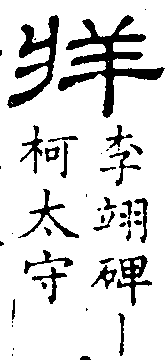 牂
李翊碑丨
柯太守